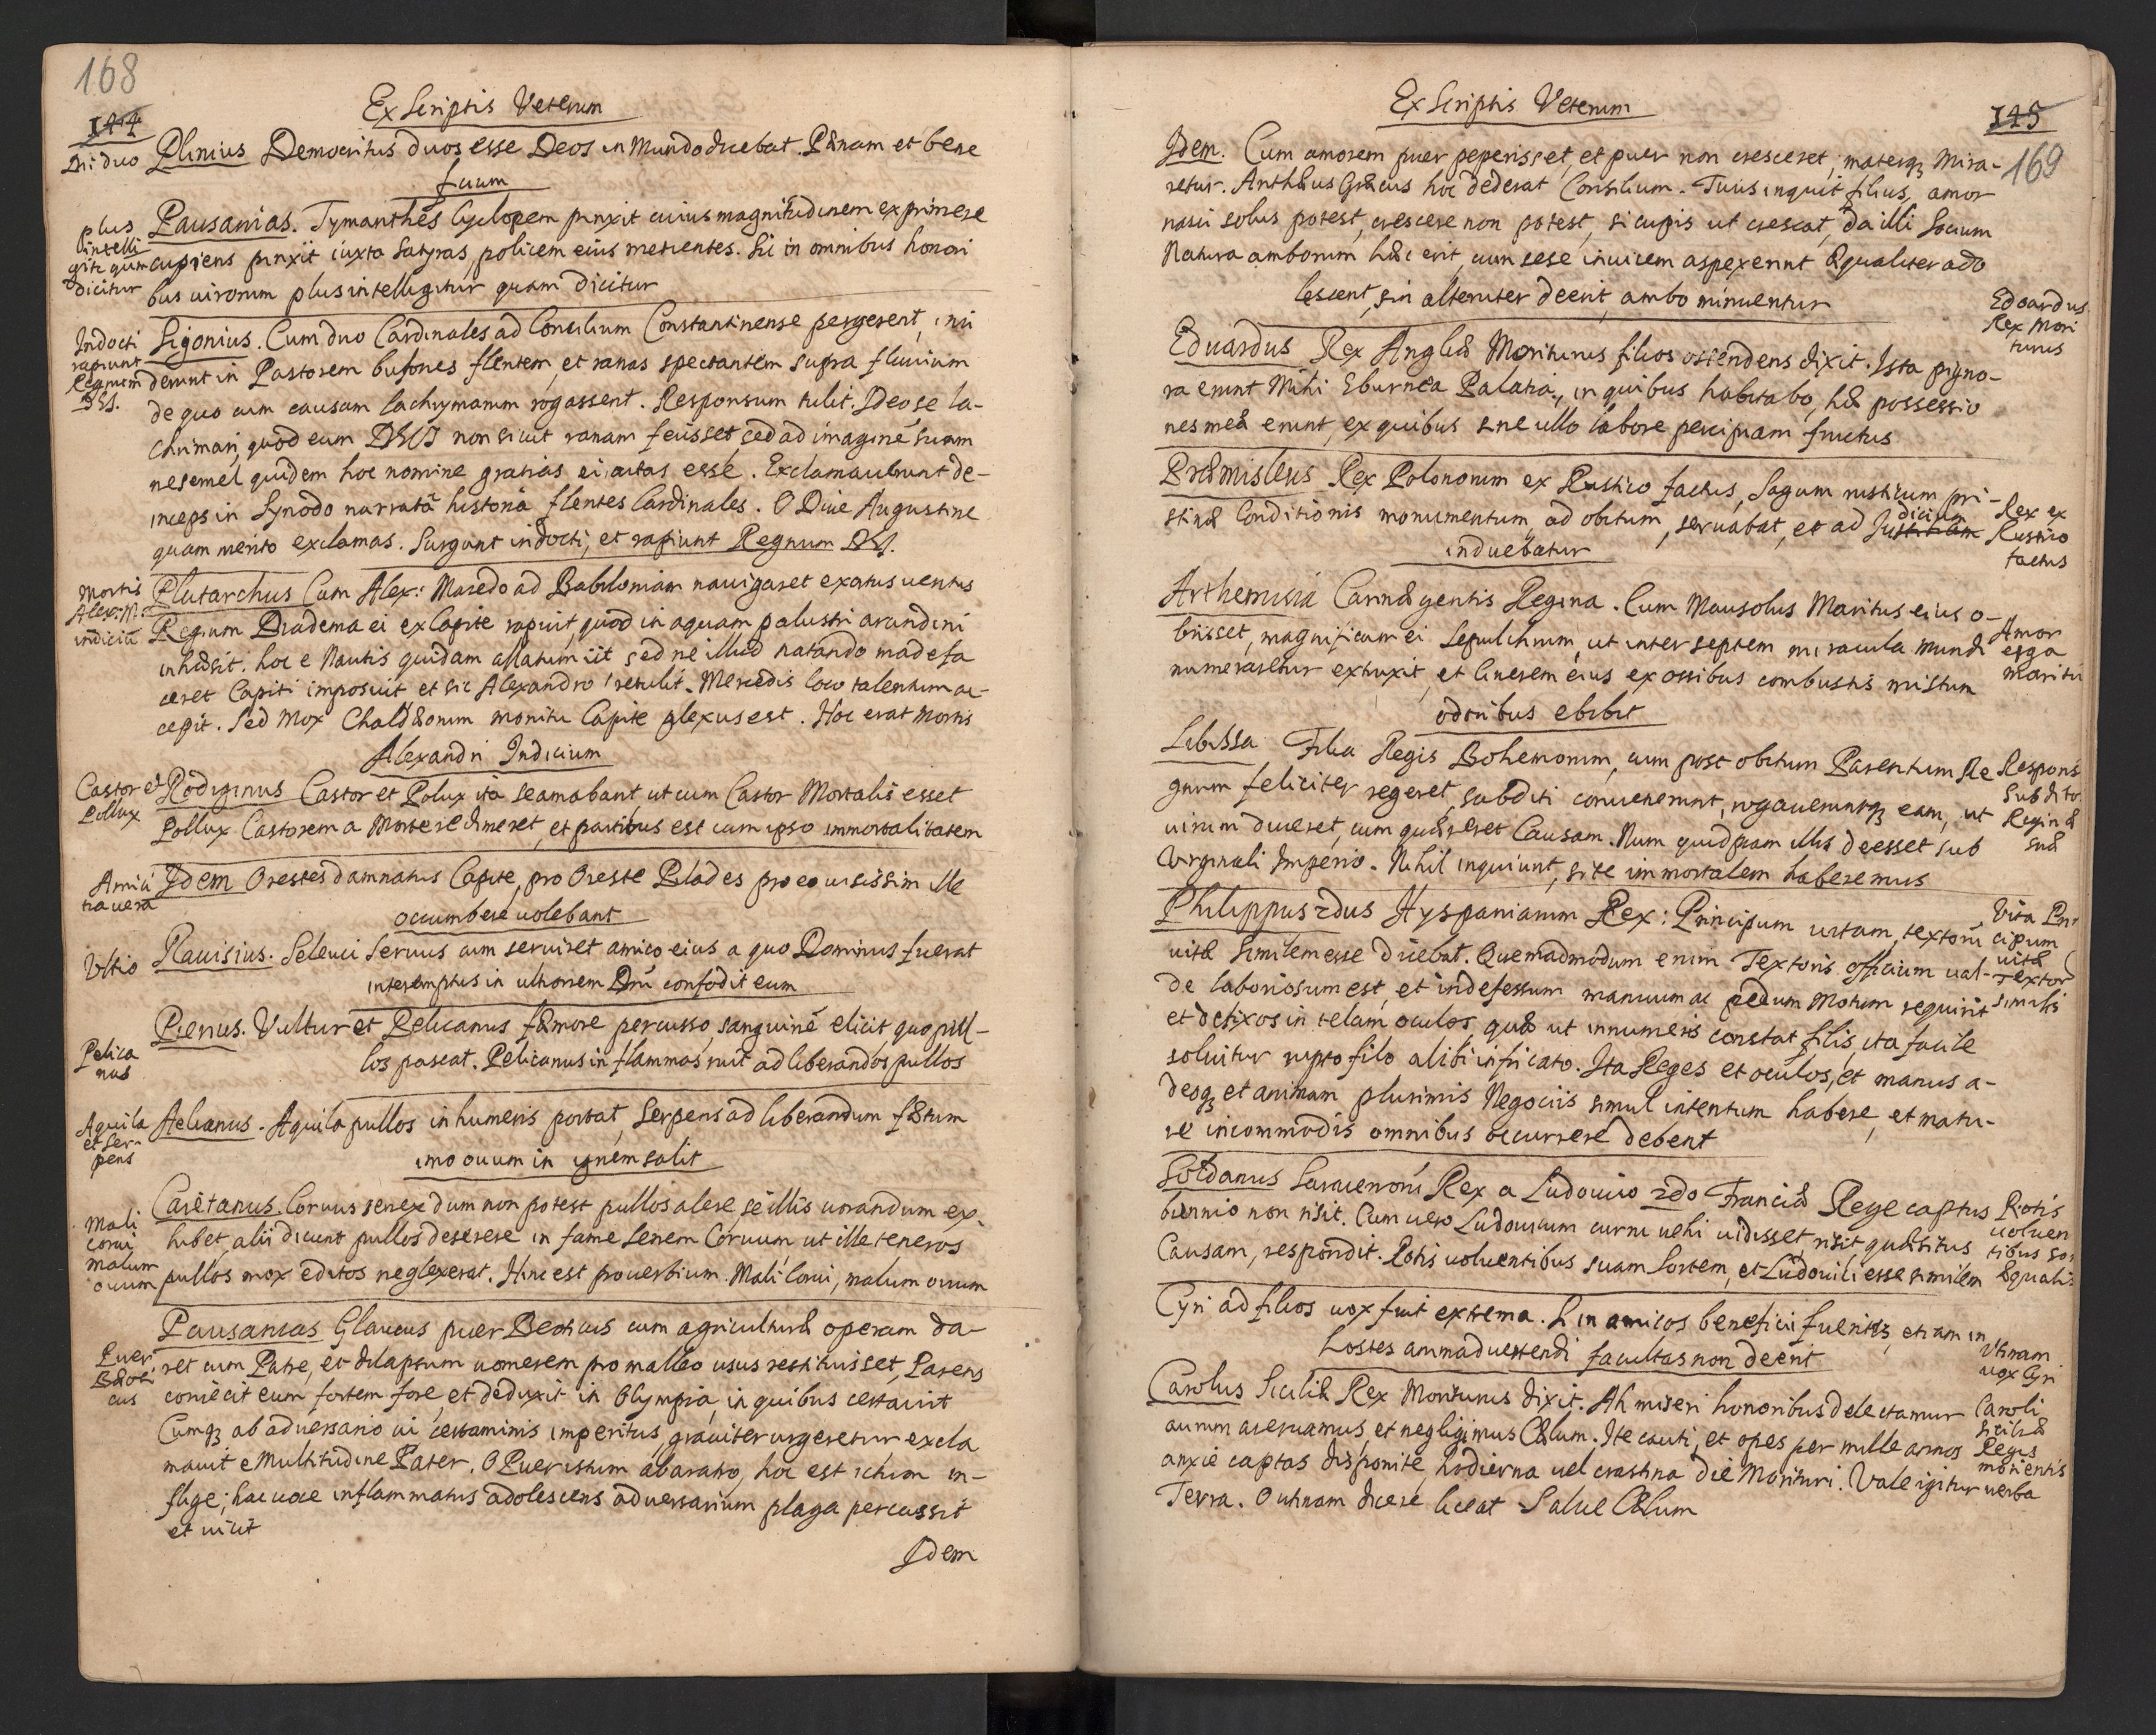 168
144
Ex Scriptis Veterum
Dii duo
Plinius Democritus duos esse Deos in Mundo dicebat. Pænam et bene
ficium
plus
intelli
gitr quam
dicitur
Pausanias. Tymanthes Cyclopem pinxit cuius magnitudinem exprimere
cupiens pinxit iuxta Satyras, policem eius metientes. Sic in omnibus honori
bus uirorum plus intelligitur quam dicitur
Indocti
rapiunt
Regnum
DEI.
Sigonius. Cum duo Cardinales ad Concilium Constantinense pergerent, inci
derunt in Pastorem bufones flentem, et ranas spectantem supra fluuium
de quo cum causam lachrymarum rogassent. Responsum tulit. Ideo se la-
chrimari, quod eum DEUS non sicut ranam fecisset, sed ad imaginē suam
ne semel quidem hoc nomine gratias ei actas esse. Exclamauerunt de-
inceps in Synodo narratâ historiâ flentes Cardinales. O Diue Augustine
quam merito exclamas. Surgunt indocti, et rapiunt Regnum DEI.
Mortis
Alex: M:
indiciū
Plutarchus Cum Alex: Macedo ad Babiloniam nauigaret exortus uentus
Regium Diadema ei ex Capite rapuit, quod in aquam palustri arundini
inhæsit. hoc e Nautis quidam allatum iit sed ne illud natando madefa
ceret Capiti imposuit et sic Alexandro retulit. Mercedis loco talentum ac-
cepit. Sed mox Chaldæorum monitu Capite plexus est. Hoc erat Mortis
Alexandri Indicium
Castor et
Pollux
Rodiginus Castor et Polux ita se amabant, ut cum Castor Mortalis esset
Pollux Castorem a Morte redimeret, et partitus est cum ipso immortalitatem
Amici
tia uera
Idem Orestes damnatus Capite, pro Oreste Pilades pro eo uicissim ille
occumbere uolebant
Vltio
Rauisius. Seleuci Seruus cum seruiret amico eius a quo Dominus fuerat
interemptus in ultionem Dni confodit eum
Pelica
nus
Pierius. Vultur et Pelicanus fæmore percusso, sanguinē elicit quo pul-
los pascat. Pelicanus in flammas ruit ad liberandos pullos
Aquila
et Ser-
pens
Aelianus. Aquila pullos in humeris portat, Serpens ad liberandum fætum
imo ouum in ignem salit
Mali
corui
malum
ouum
Caietanus. Coruus senex dum non potest pullos alere, se illis uorandum ex-
hibet, alii dicunt pullos deserere in fame Senem Coruum, ut ille teneros
pullos mox editos neglexerat. Hinc est prouerbium. Mali Corui, malum ouum
Puer
Bæoti
cus
Pausanias Glaucus puer Beoticus cum agriculturæ operam da-
ret cum Patre, et dilapsum uomerem pro malleo usus restituisset, Parens
coniecit eum fortem fore, et deduxit in Olympia, in quibus certauit
Cumqȝ ab aduersario ui certaminis imperitus, grauiter urgeretur excla
mauit e Multitudine Pater. O Puer istum ab aratro, hoc est ictum in-
flige; hac uoce inflammatus adolescens aduersarium plaga percussit
et uicit
Idem
Ex Scriptis Veterum
145
169
Idem. Cum amorem puer peperisset, et puer non cresceret, materqȝ mira-
retur. Anthæus Græcus hoc dederat Consilium. Tuus inquit filius, amor
nasci solus potest, crescere non potest, si cupis ut crescat, da illi Socium
Natura amborum hæc erit, cum sese inuicem aspexerint æqualiter ado
lescent, sin alteruter deerit, ambo minuentur
Edoardus
Rex Mori
turus
Eduardus Rex Angliæ Moriturus filios ostendens dixit. Ista pigno-
ra erunt Mihi Eburnea Palatia, in quibus habitabo, hæ possessio
nes meæ erunt, ex quibus sine ullo labore percipiam fructus
Rex ex
Rustico
factus
Præmisleus Rex Polonorum ex Rustico factus, Sagum rusticum pri-
stinæ Conditionis monumentum, ad obitum, seruabat, et ad Justitiam dicium
induebatur
Amor
erga
maritū
Arthemisia Carnæ gentis Regina. Cum Mausolus Maritus eius o-
biisset, magnificum ei Sepulchrum, ut inter septem miracula mundi
numeraretur extruxit, et Cinerem eius ex ossibus combustis mistum
odoribus ebibit
Respons
Subdito
Reginæ
suæ
Libussa Filia Regis Bohemorum, cum post obitum Parentum Re
gnum feliciter regeret, subditi conuenerunt, rogaueruntqȝ eam, ut
uirum duceret, cum quæreret Causam. Num quidpiam illis deesset sub
Virginali Imperio. Nihil inquiunt, si te immortalem haberemus
Vita Prī
cipum
uitæ
Textor
similis
Philippus 2dus Hyspaniarum Rex: Principum uitam, textorū
uitæ Similem esse dicebat. Quemadmodum enim Textoris officium ual-
de laboriosum est, et indefessum manuum ac pedum Motum requirit
et defixos in telam oculos, quæ ut innumeris constat filis, ita facile
soluitur rupto filo alibi infricato. Ita Reges et oculos, et manus a-
deoqȝ et animam plurimis Negociis simul intentum habere, et matu-
re incommodis omnibus occurrere debent
Rotis
uoluen
tibus sors
æqualis
Soldanus Saracenorū Rex a Ludouico 2do Franciæ Rege captus
biennio non risit. Cum uero Ludouicum curru uehi uidisset, risit, quæsitus
Causam, respondit. Rotis uoluentibus suam Sortem, et Ludouici esse similem
Cyri ad filios uox fuit extrema. Si in amicos benefici fueritis, etiam in
hostes animaduertendi facultas non deerit
Vtinam
uox Cyri
Caroli
Siciliæ
Regis
morientis
uerba
Carolus Siciliæ Rex Moriturus dixit. Ah miseri honoribus delectamur
aurum aceruamus, et negligimus Cælum. Ite cauti, et opes per mille annos
anxie captas disponite, hodierna uel crastina die Morituri. Vale igitur
Terra. O utinam dicere liceat Salue Cælum